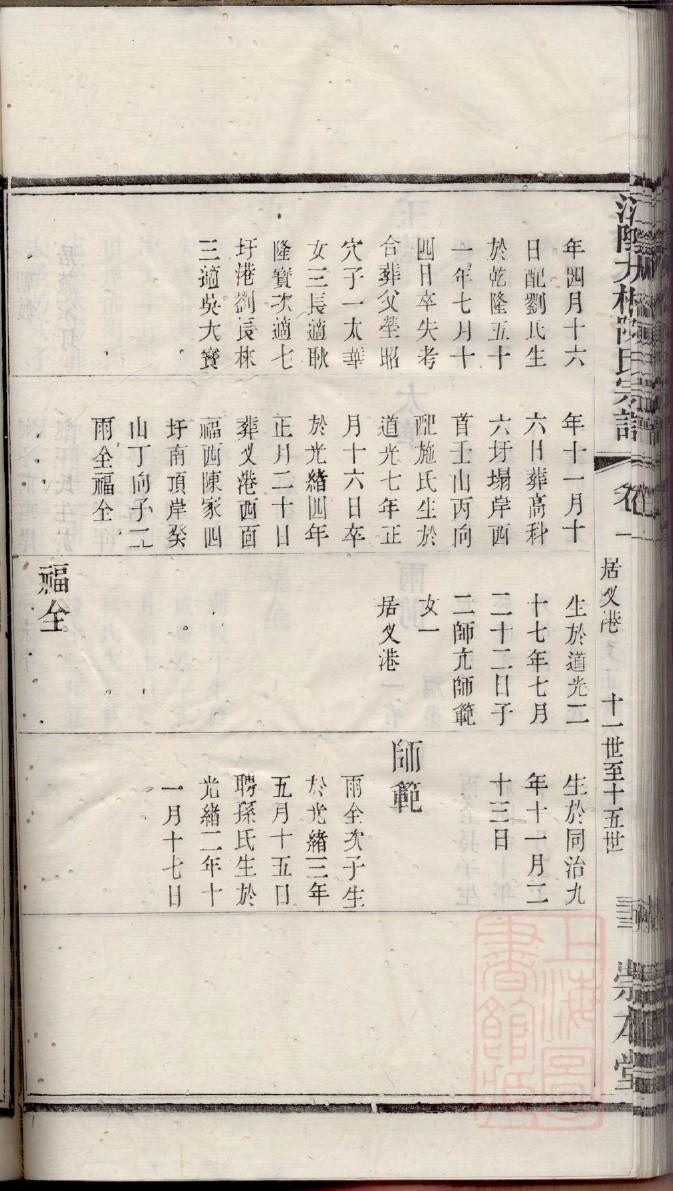 江陰九相陳氏宗譜
卷一
居义港
十一世至十五世
崇本堂
年四月十六
日配劉氏生
於乾隆五十
一年七月十
四日卒失考
合葬父塋昭
穴子一太華
女三長適耿
隆寶次適七
圩港劉長林
三適吳大寶
年十一月十
六日葬高科
六圩塌岸西
首壬山丙向
配施氏生於
道光七年正
月十六日卒
於光緒四年
正月二十日
葬义港西面
福酉陳家四
圩南頂岸癸
山丁向子二
雨全福全
生於道光二
十七年七月
二十二日子
二師亢師範
女一
居义港
福全
生於同治九
年十一月二
十三日
師範
雨全次子生
於光緒三年
五月十五日
聘孫氏生於
光緒二年十
一月十七日
上海圖書館藏